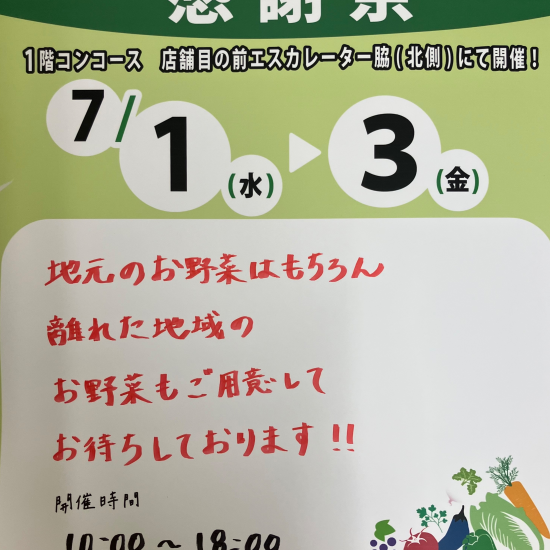 感謝祭
1階コンコース 店舗目の前エスカレーター脇(北側)にて開催！
7/1(水)▶3(金)
地元のお野菜はもちろん
離れた地域の
お野菜もご用意して
お待ちしております!!
開催時間
10:00～18:00